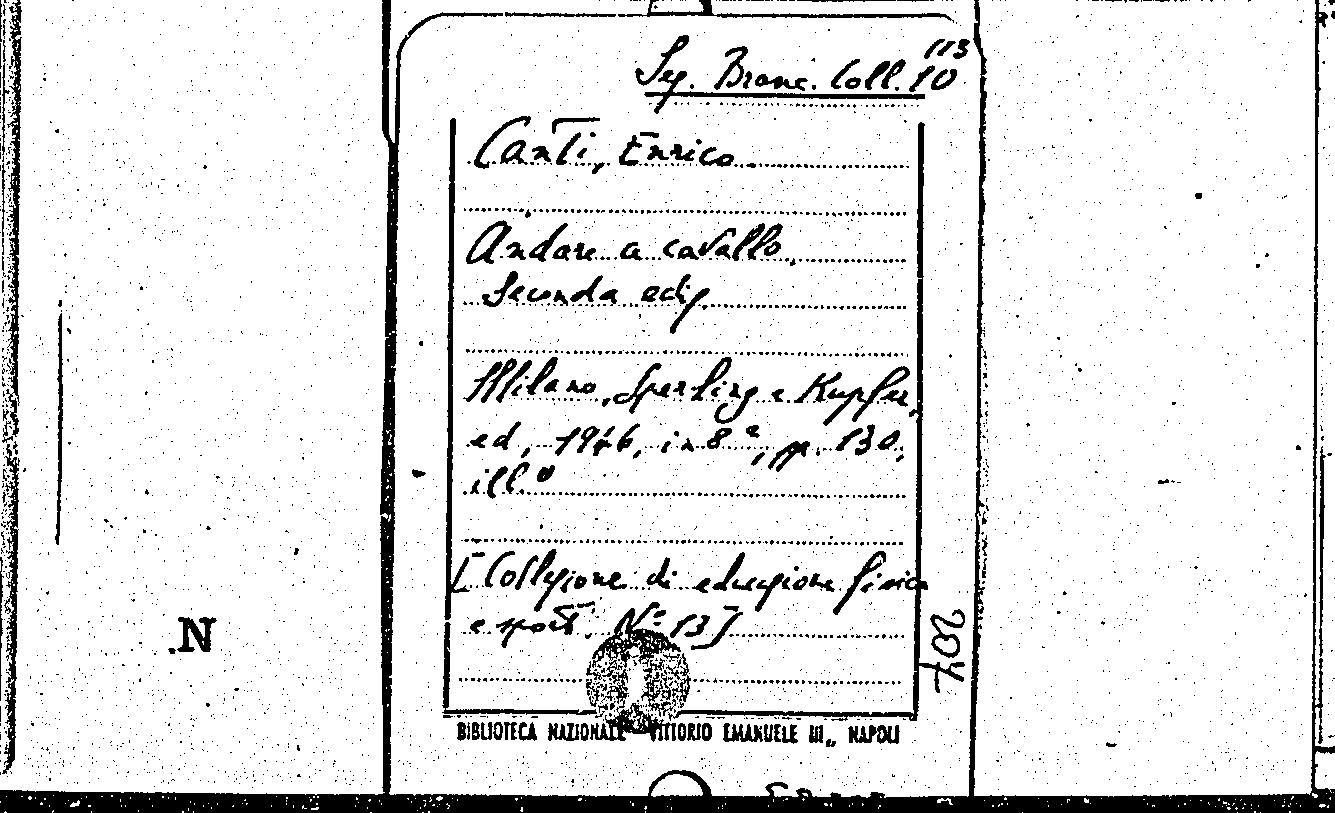 113
Sez. Branc. Coll. 10
Canti, Enrico.
Andare a cavallo.
Seconda ediz.
Milano, Sperling e Kupfer,
ed, 1946, in 8º, pp. 130,
ill.º
[Collezione di educazione fisica
e sport. Nº 13]
.N
BIBLIOTECA NAZIONALE "VITTORIO EMANUELE III„ NAPOLI